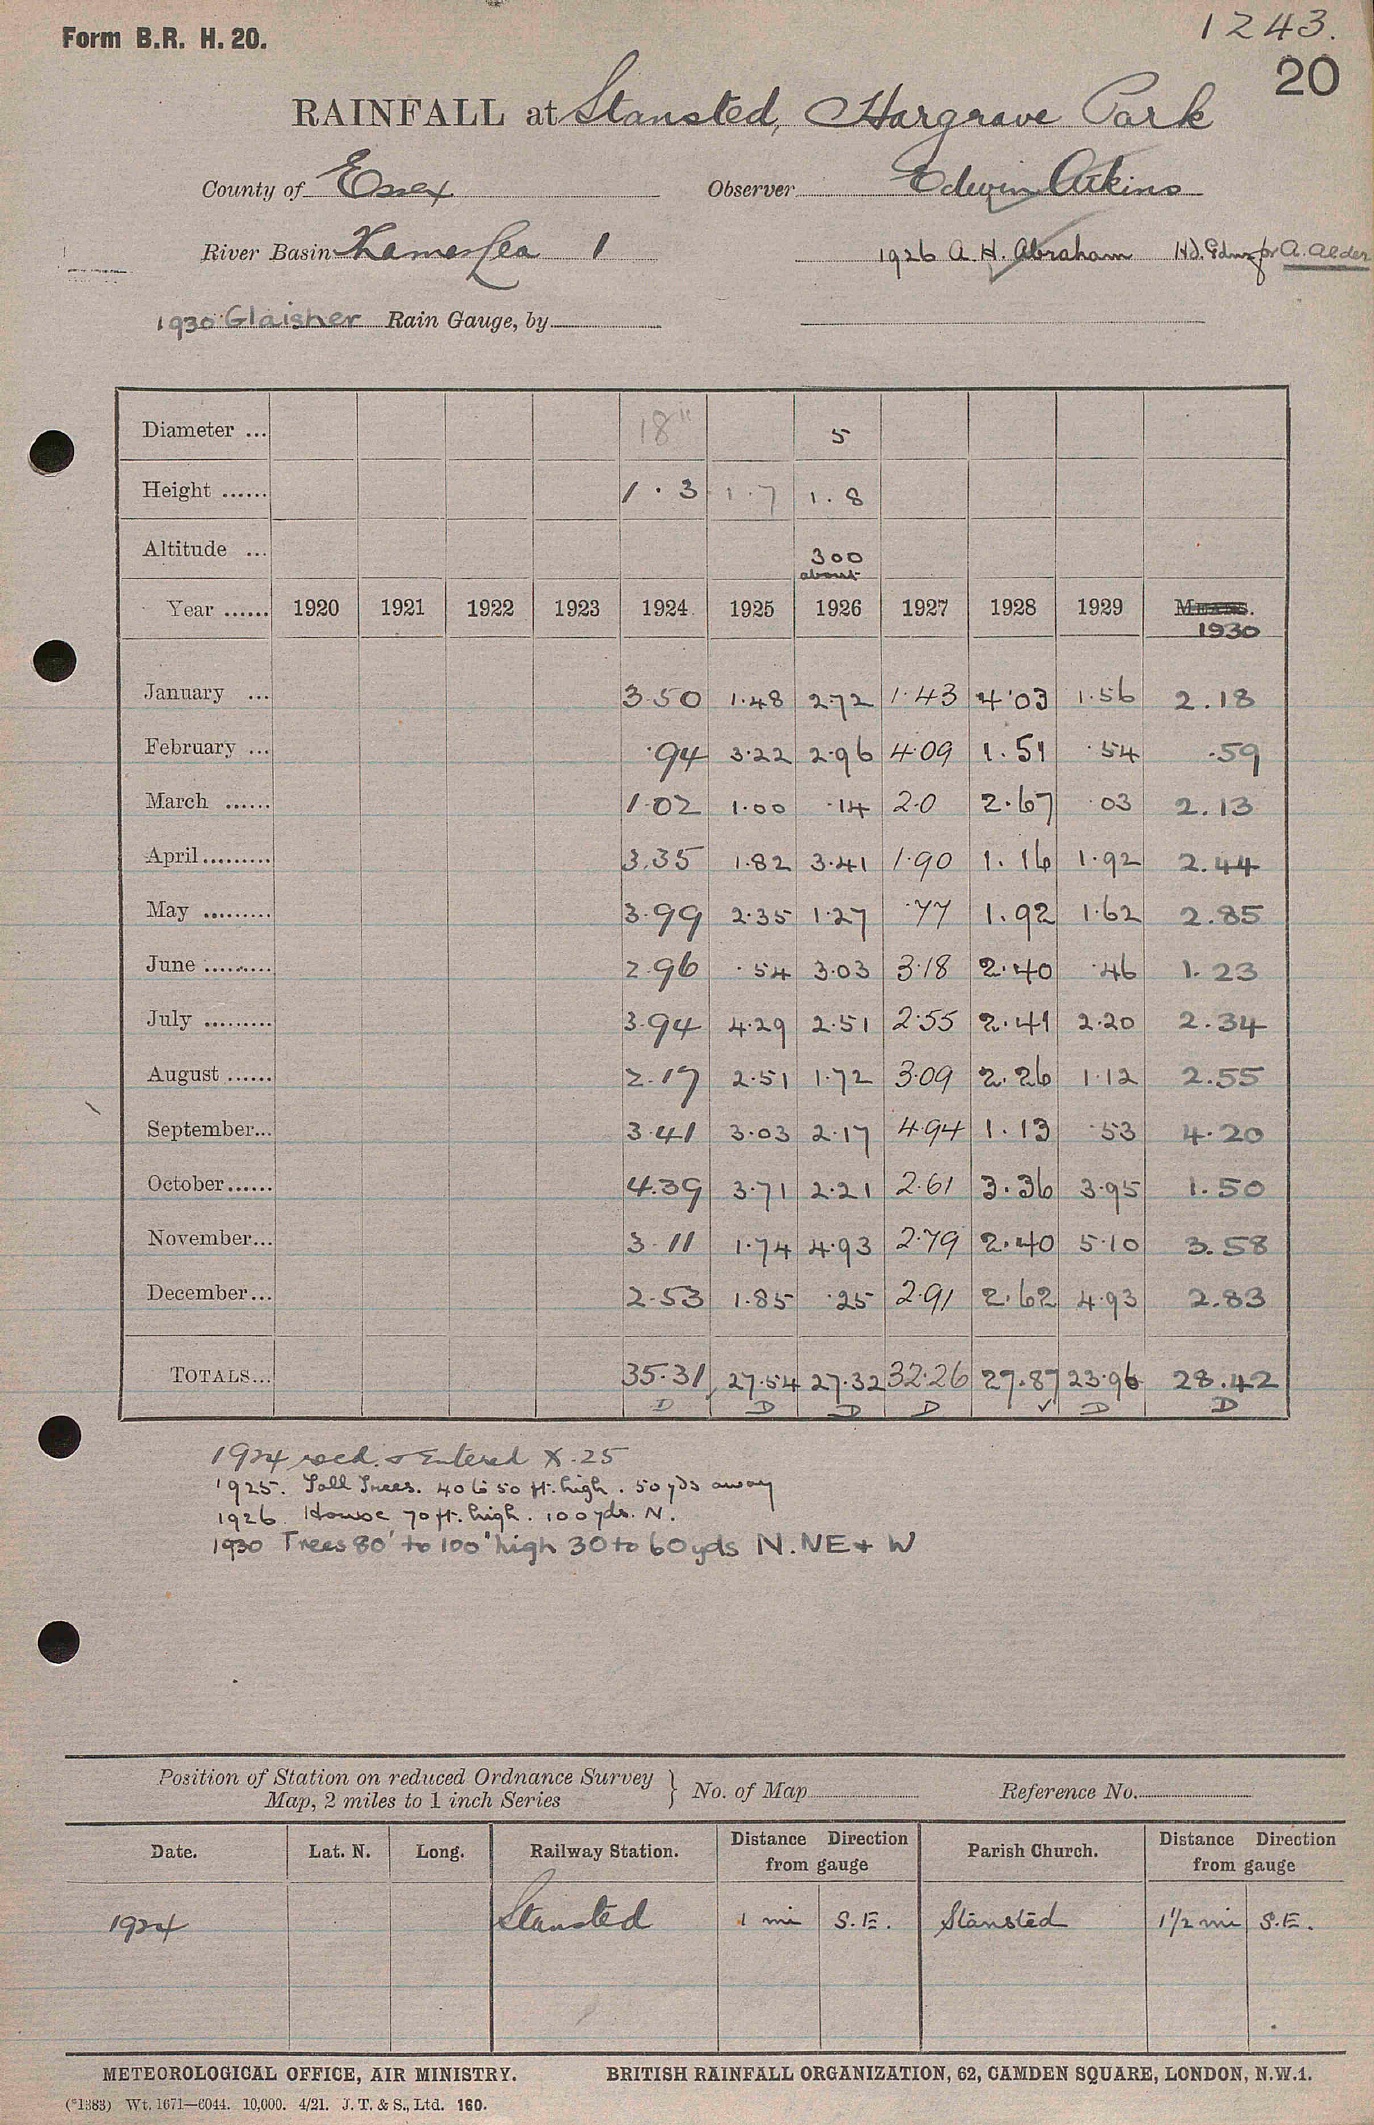 1243.
Form B.R. H. 20.
20
RAINFALL at Stansted, Hargrave Park
County of Essex Observer Edwin Atkins
River Basin Thames Lea 1 1926 A. H. Abraham A. Alder
1930 Glaisher Rain Gauge, by
Diameter ... 18" 5
Height ...... 1.3 1.7 1.8
Altitude ... 300
about
Year ...... 1920 1921 1922 1923 1924 1925 1926 1927 1928 1929 MEANS.
1930
January ... 3.50 1.48 2.72 1.43 4.03 1.56 2.18
February ... .94 3.22 2.96 4.09 1.51 .54 .59
March ...... 1.02 1.00 .14 2.0 2.67 .03 2.13
April ......... 3.35 1.82 3.41 1.90 1.16 1.92 2.44
May ......... 3.99 2.35 1.27 .77 1.92 1.62 2.85
June ......... 2.96 .54 3.03 3.18 2.40 .46 1.23
July ......... 3.94 4.29 2.51 2.55 2.41 2.20 2.34
August ...... 2.17 2.51 1.72 3.09 2.26 1.12 2.55
September... 3.41 3.03 2.17 4.94 1.13 .53 4.20
October...... 4.39 3.71 2.21 2.61 3.36 3.95 1.50
November... 3.11 1.74 4.93 2.79 2.40 5.10 3.58
December... 2.53 1.85 .25 2.91 2.62 4.93 2.83
TOTALS... 35.31 27.54 27.32 32.26 27.87 23.96 28.42
D D D D ✓ D D
1924 recd. & Entered X.25
1925. Tall Trees. 40 to 50 ft. high. 50 yds away
1926 House 70 ft. high. 100 yds. N.
1930 Trees 80' to 100' high 30 to 60 yds N. NE + W
Position of Station on reduced Ordnance Survey
Map, 2 miles to 1 inch Series } No. of Map Reference No.
Date. Lat. N. Long. Railway Station. Distance Direction from gauge Parish Church. Distance Direction from gauge
1924 Stansted 1 mi S.E. Stansted 1 1/2 mi S.E.
METEOROLOGICAL OFFICE, AIR MINISTRY. BRITISH RAINFALL ORGANIZATION, 62, CAMDEN SQUARE, LONDON, N.W.1.
(*1383) Wt. 1671—6044. 10,000. 4/21. J. T. & S., Ltd. 160.